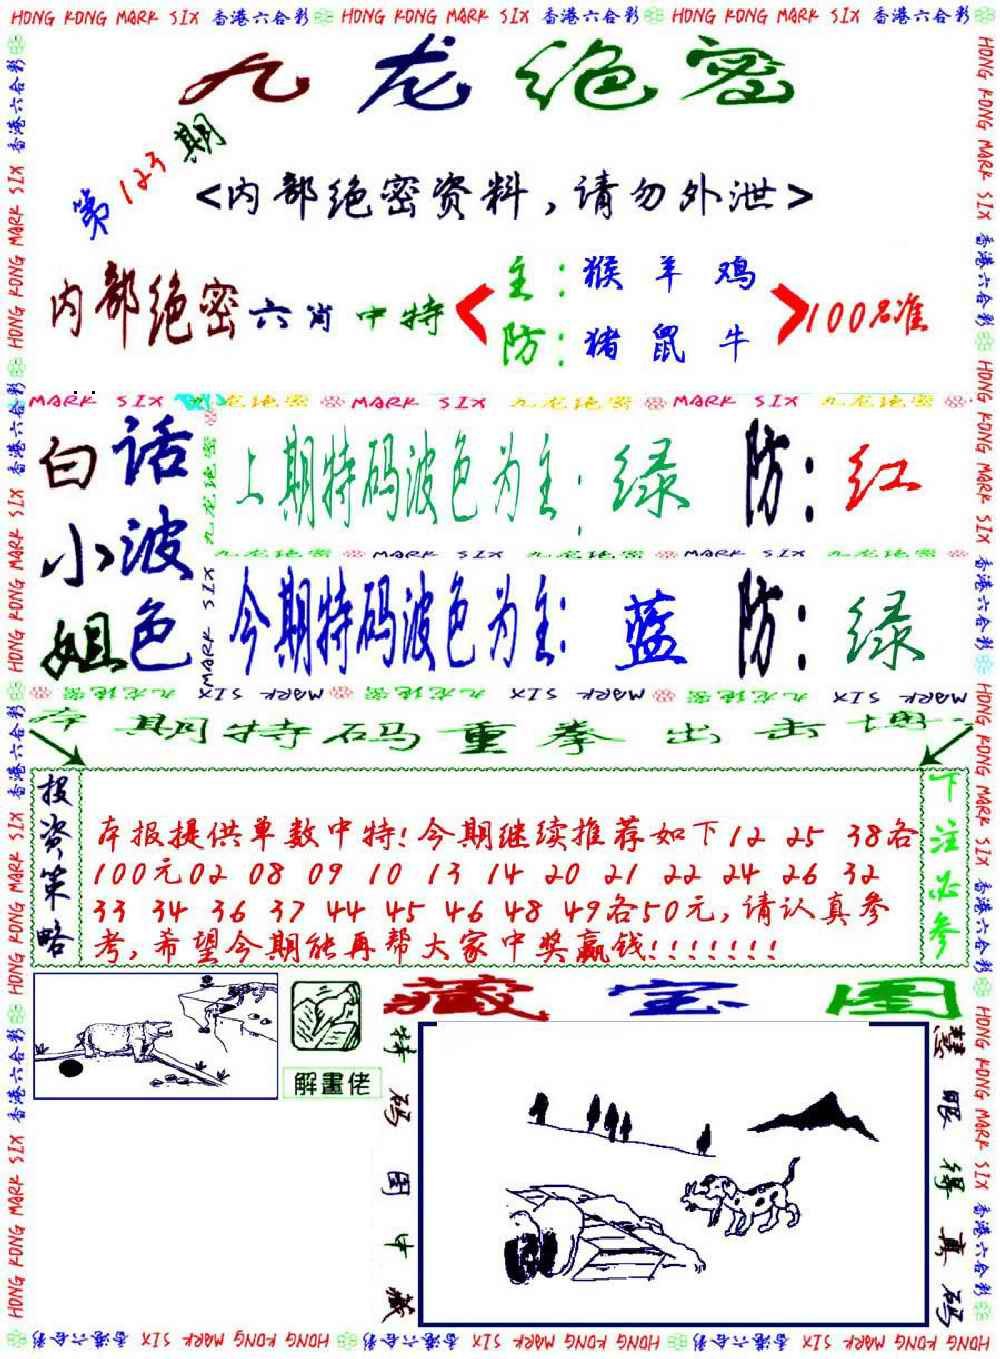 HONG KONG MARK SIX 香港六合彩 HONG KONG MARK SIX 香港六合彩 HONG KONG MARK SIX 香港六合彩
九龙绝密
第123期
<内部绝密资料，请勿外泄>
内部绝密六肖中特
主：猴 羊 鸡
防：猪 鼠 牛
100%准
MARK SIX 九龙绝密 MARK SIX 九龙绝密 MARK SIX 九龙绝密
白小姐
话波色
上期特码波色为主：绿 防：红
九龙绝密 MARK SIX 九龙绝密 MARK SIX 九龙绝密
今期特码波色为主：蓝 防：绿
九龙绝密 MARK SIX 九龙绝密 MARK SIX 九龙绝密 MARK SIX
本期特码重拳出击
投资策略
本报提供单数中特！今期继续推荐如下12 25 38各
100元02 08 09 10 13 14 20 21 22 24 26 32
33 34 36 37 44 45 46 48 49各50元，请认真参
考，希望今期能再帮大家中奖赢钱！！！！！！！
下注必参
藏宝图
解畫佬
特码图中藏
慧眼得真码
HONG KONG MARK SIX 香港六合彩 HONG KONG MARK SIX 香港六合彩 HONG KONG MARK SIX 香港六合彩